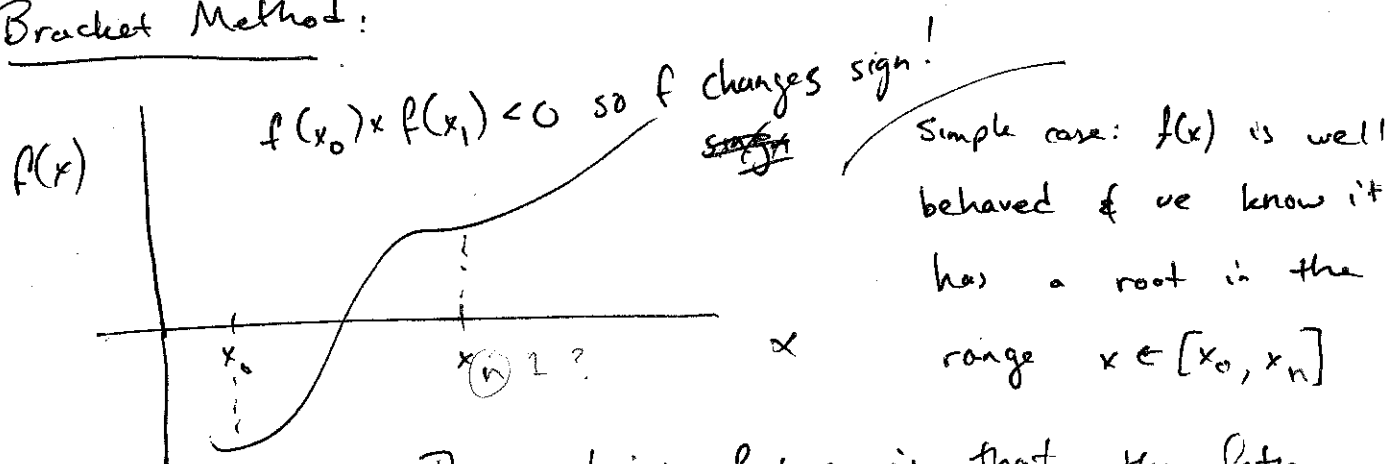 Bracket Method:
f(x₀) × f(x₁) < 0 so f changes sign!
f(x)
Simple case: f(x) is well
behaved & we know it
has a root in the
range x ∈ [x₀, xₙ]
x₀
xₙ 1 ?
x
is that the